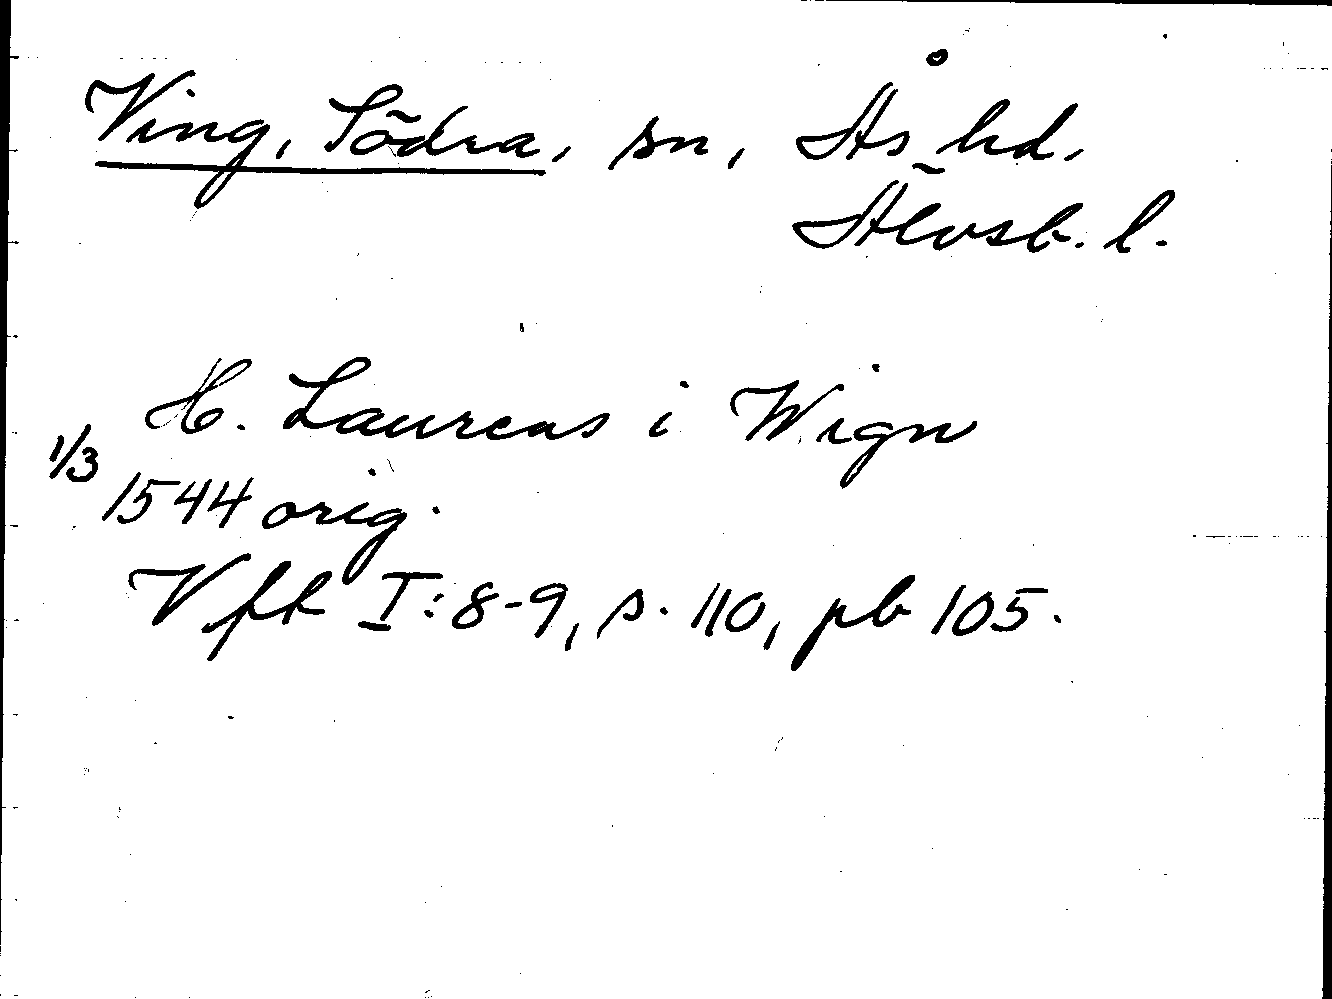 Ving, Södra, sn, Ås hd,
Älvsb. l.
H. Laurens i Wign
1/3
1544 orig.
Vft I:8-9, s. 110, pb 105.